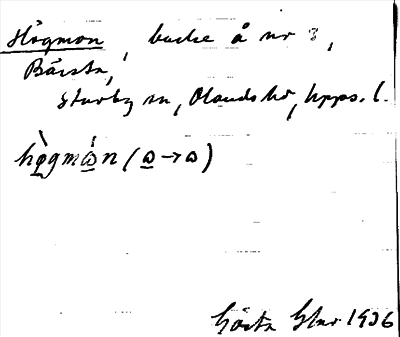 Högmon, backe å nr 3,
Bärsta,
Stavby sn, Olands hd, Upps. l.
högmón (ω→ω)
Gösta 1936